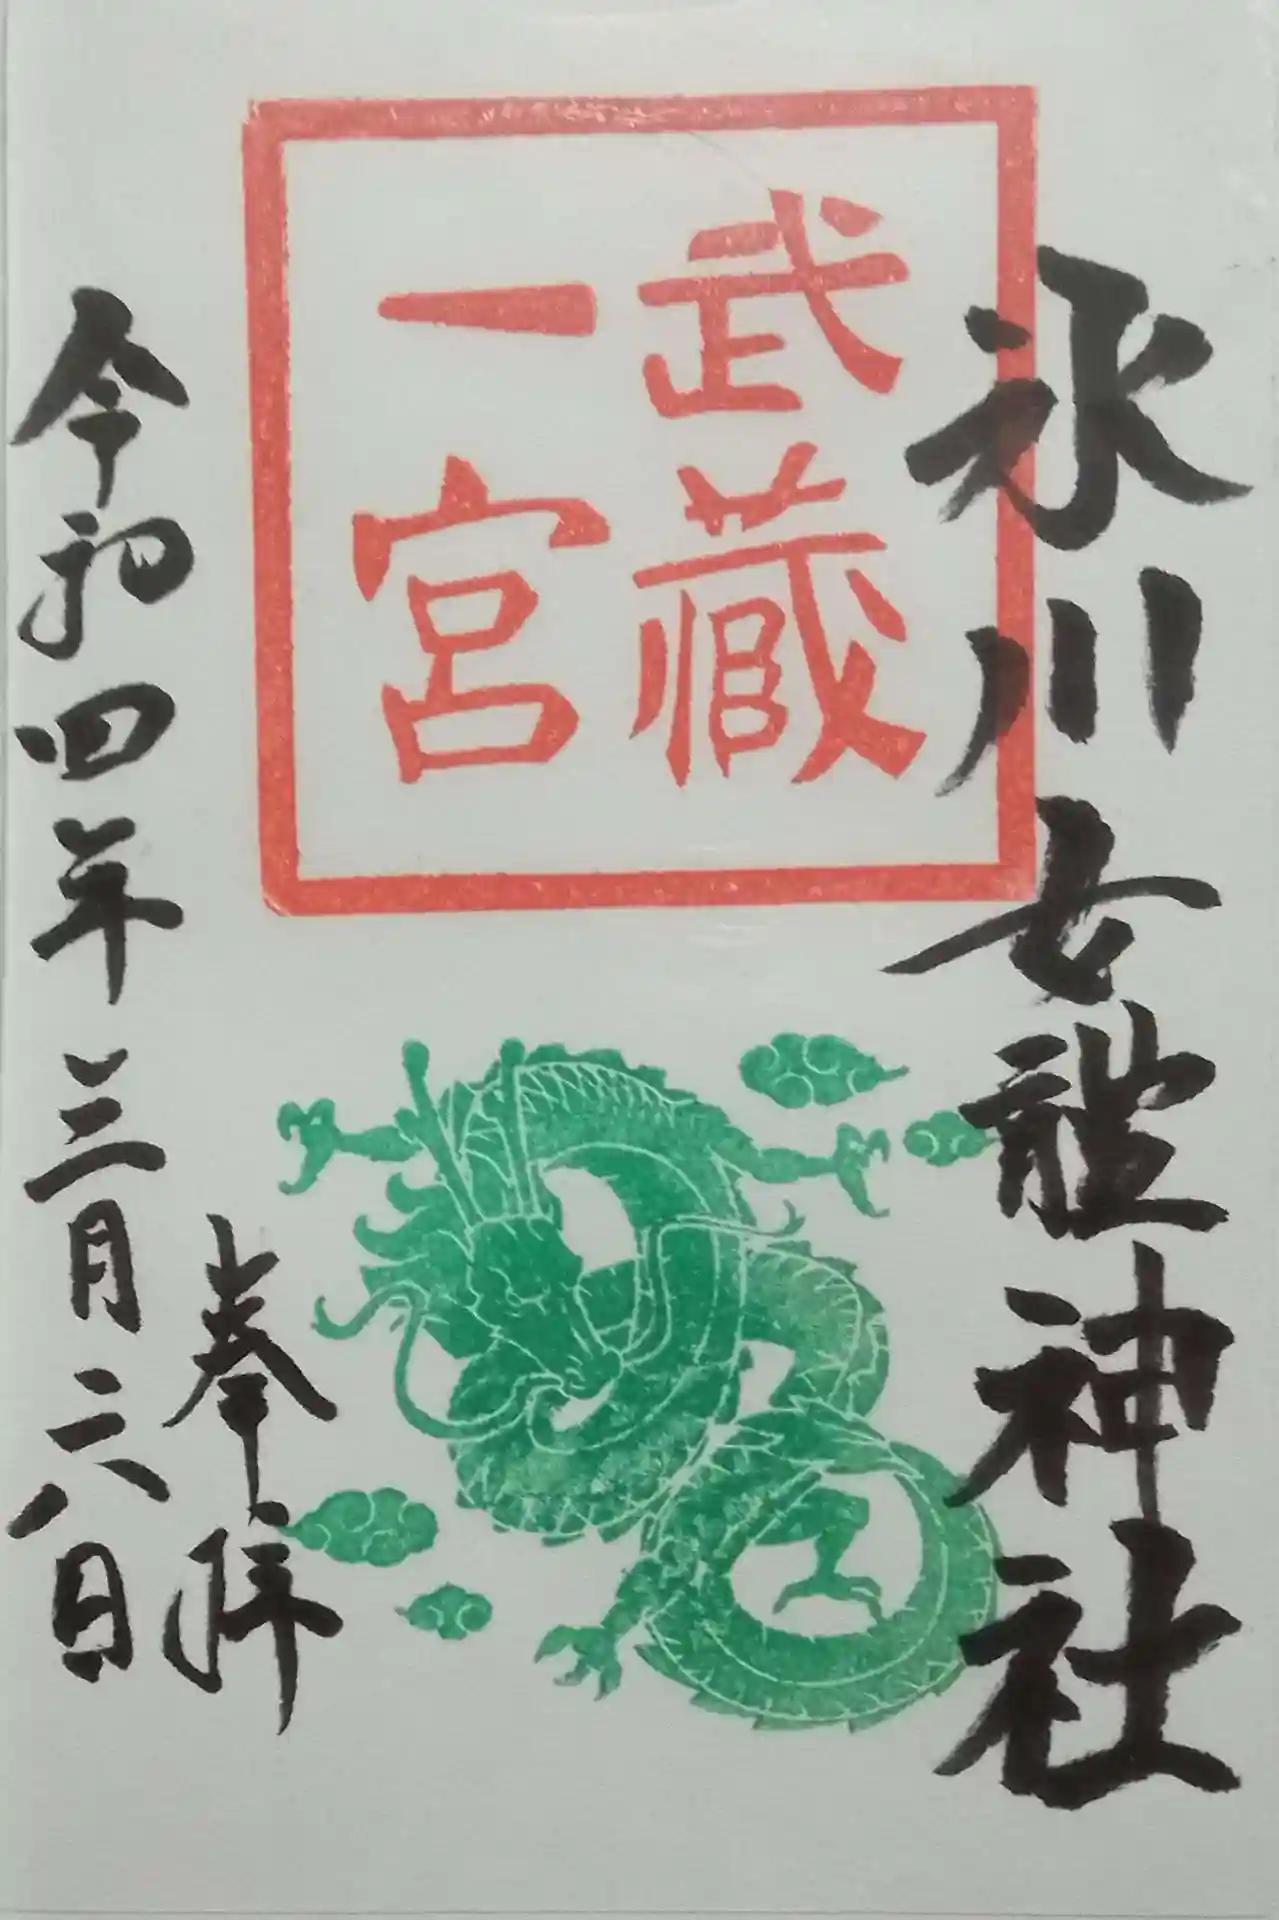 氷川女體神社
武蔵
一宮
奉拝
令和四年三月二八日